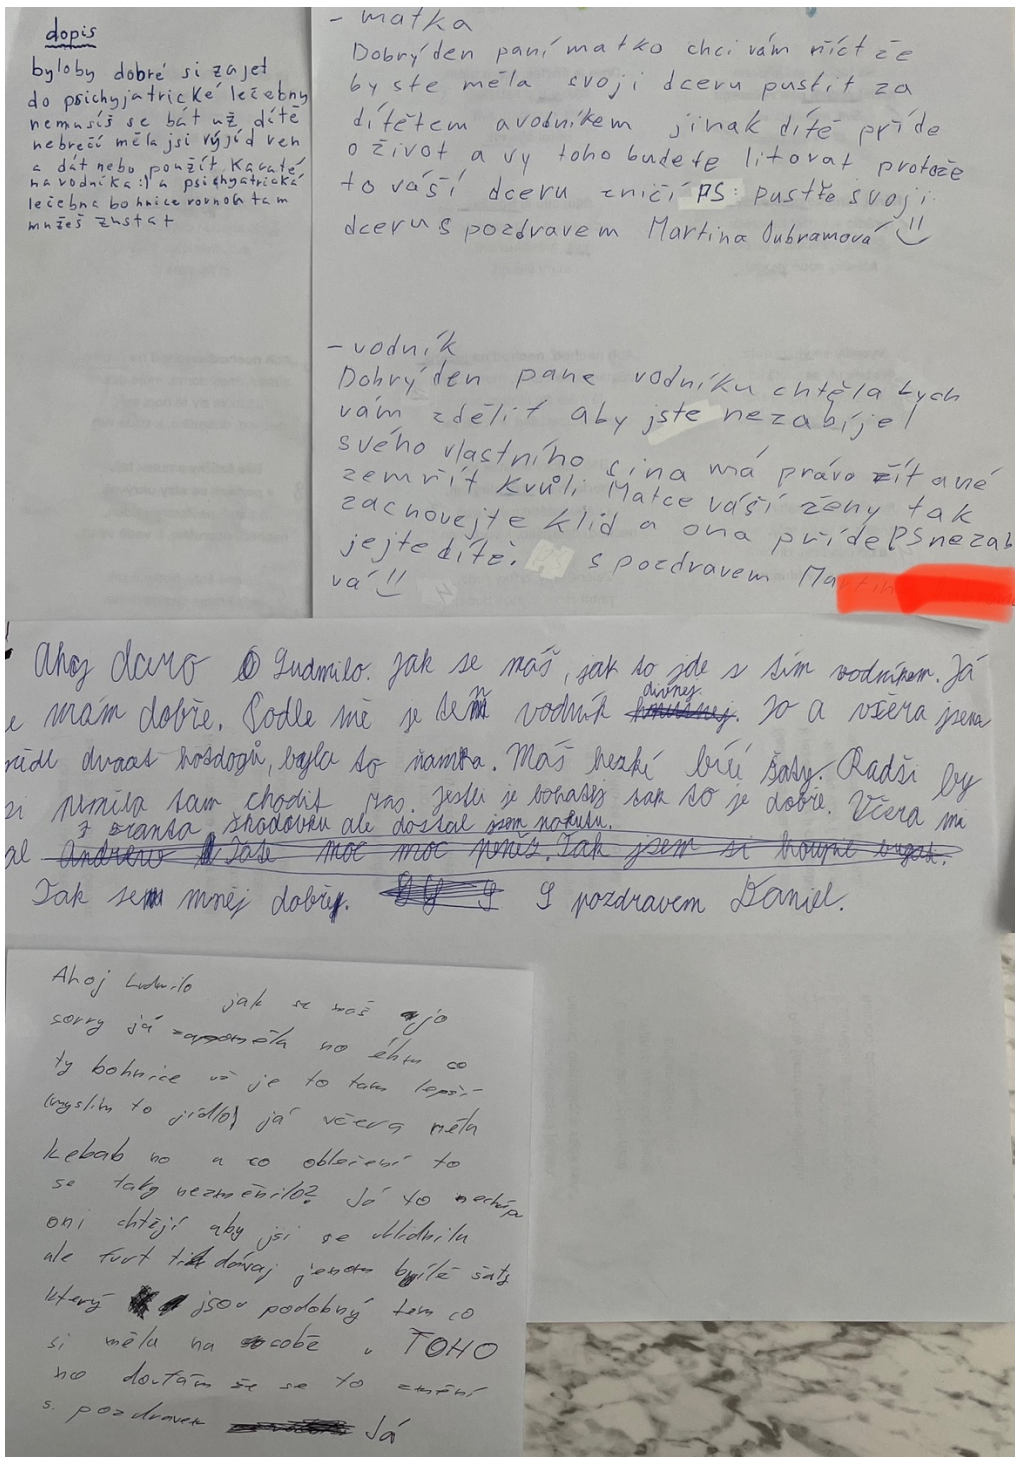 dopis
byloby dobré si zajet
do psichyjatrické lečebny
nemusíš se bát už dítě
nebrečí měla jsi výjíd ven
a dát nebo použít Karaté
na vodníka :) a psichyatrická
lečebna bohnice rovnou tam
mužeš zustat
- matka
Dobrý den paní matko chci vám říct že
by ste měla svoji dceru pustit za
dítětem a vodníkem jinak dítě příde
o život a vy toho budete litovat protože
to váší dceru zničí PS: pustťe svoji
dceru s pozdravem Martina Dubramová
- vodník
Dobrý den pane vodníku chtěla bych
vám zdělit aby jste nezabíjel
svého vlastního sina má právo žít a né
zemřít kvůli Matce váší ženy tak
zachovejte klid a ona příde PS nezab
jejte dítě. PS s pozdravem Martin
vá
Ahoj dcero Ludmilo. Jak se máš, jak to jde s tím vodníkem. Já
e mám dobře. Podle mě je ten vodník divnej. Jo a včera jsem
dvacet hotdogů, byla to ňamka. Máš hezké bílé šaty. Radši by
si neměla tam chodit. Jestli je bohatej tak to je dobře. Včera mi
z granta škodovku ale dostal jsem pokutu.
al
Tak se měj dobře. S pozdravem Daniel.
Ahoj Ludmilo jak se máš jo
sorry já zapoměla no éhm co
ty bohnice už je to tam lepší
(myslim to jídlo) já včera měla
kebab no a co oblečení to
se taky nezměnilo? Já to nechápu
oni chtějí aby jsi se uklidnila
ale furt ti dávaj jenom bílé šaty
který jsou podobný tem co
si měla na sobě u TOHO
no doufám že se to změní
s pozdravem Já